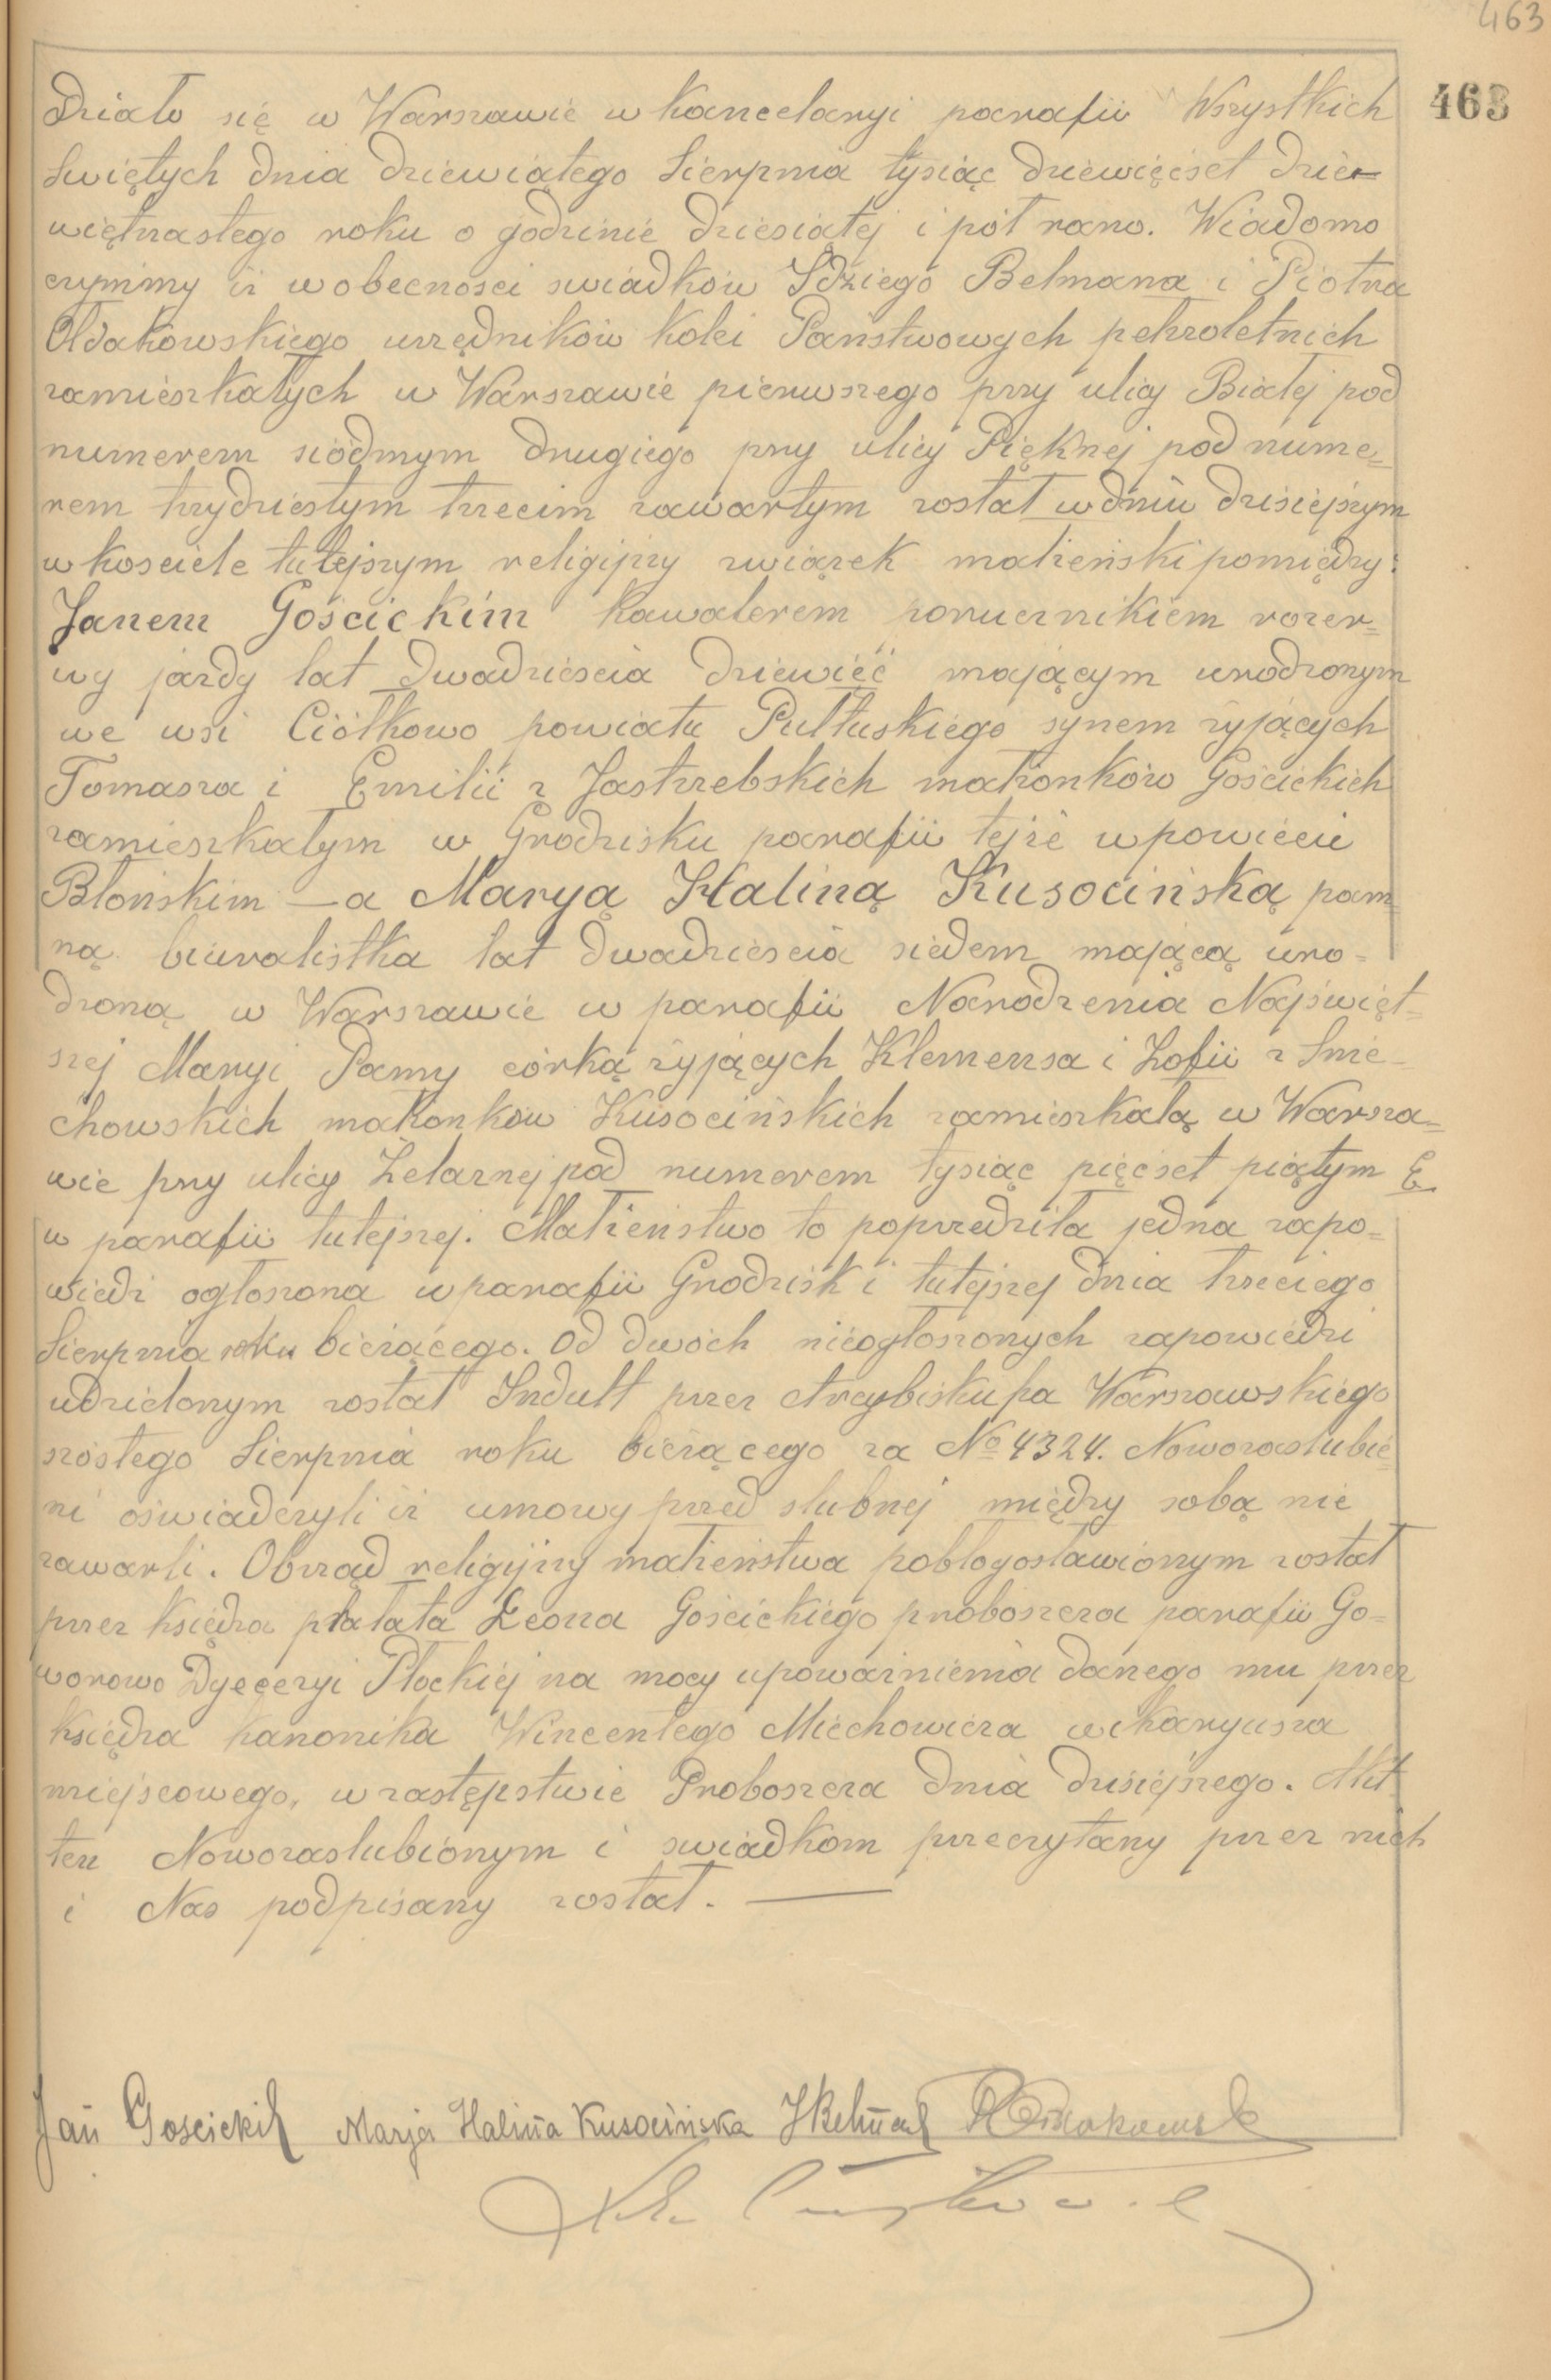 463
463
Działo się w Warszawie w kancelaryi parafii Wszystkich
Świętych dnia dziewiątego Sierpnia tysiąc dziewięćset dzie-
więtnastego roku o godzinie dziesiątej i pół rano. Wiadomo
czynimy iż w obecności swiadków Idziego Belmana i Piotra
Ołdakowskiego urzędników kolei Państwowych pełnoletnich
zamieszkałych w Warszawie pierwszego przy ulicy Białej pod
numerem siódmym drugiego przy ulicy Pięknej pod nume=
rem trzydziestym trzecim zawartym został w dniu dzisiejszym
w kosciele tutejszym religijny związek małżeński pomiędzy:
Janem Gościckim Kawalerem porucznikiem rezer=
wy jazdy lat dwadzieścia dziewięć mającym urodzonym
we wsi Ciółkowo powiatu Pułtuskiego synem żyjących
Tomasza i Emilii z Jastrzebskich małżonków Gościckich
zamieszkałym w Grodzisku parafii tejże w powiecie
Błońskim — a Maryą Haliną Kusocińską pan=
ną biuralistka lat dwadzieścia siedem mającą uro=
dzoną w Warszawie w parafii Narodzenia Najświęt=
szej Maryi Panny córką żyjących Klemensa i Zofii z Smie-
chowskich małżonków Kusocińskich zamieszkałą w Warsza=
wie przy ulicy Żelaznej pod numerem tysiąc pięćset piątym E
w parafii tutejszej. Małżeństwo to poprzedziła jedna zapo=
wiedź ogłoszona w parafii Grodzisk i tutejszej dnia trzeciego
Sierpnia roku bieżącego. Od dwóch nieogłoszonych zapowiedzi
udzielonym został Indult przez Arcybiskupa Warszawskiego
szóstego Sierpnia roku bieżącego za No 4324. Nowozaslubie=
ni oświadczyli iż umowy przed slubnej między sobą nie
zawarli. Obrząd religijny małżeństwa pobłogosławionym został
przez księdza prałata Leona Gościckiego proboszcza parafii Go=
worowo Dyecezyi Płockiej na mocy upoważnienia danego mu przez
księdza kanonika Wincentego Miechowicza wikaryusza
miejscowego, w zastępstwie Proboszcza dnia dzisiejszego. Akt
ten Nowozaslubionym i swiadkom przeczytany przez nich
i Nas podpisany został. —
Jan Gościcki Marja Halina Kusocińska I Belman P Ołdakowski